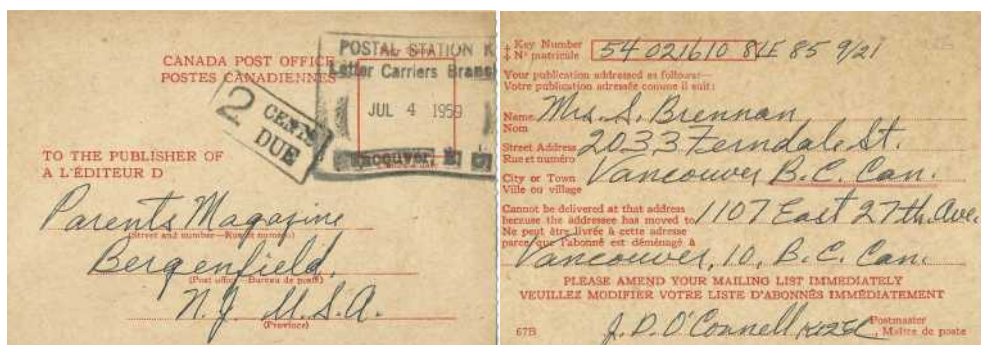 CANADA POST OFFICE
POSTES CANADIENNES
POSTAL STATION K
Letter Carriers Branch
JUL 4 1959
Vancouver, B C
2 CENTS
DUE
TO THE PUBLISHER OF
A L'ÉDITEUR D
Parents Magazine
(Street and number—Rue et numéro)
Bergenfield,
(Post office—Bureau de poste)
N.J. U.S.A.
(Province)
‡ Key Number
‡ Nº matricule
54 021610 84E 85 9/21
Your publication addressed as follows:—
Votre publication adressée comme il suit:
Name Mrs. S. Brennan
Nom
Street Address 2033 Ferndale St.
Rue et numéro
City or Town Vancouver B.C. Can.
Ville ou village
Cannot be delivered at that address
because the addressee has moved to 1107 East 27th Ave.
Ne peut être livrée à cette adresse
parce que l'abonné est déménagé à
Vancouver, 10, B.C. Can.
PLEASE AMEND YOUR MAILING LIST IMMEDIATELY
VEUILLEZ MODIFIER VOTRE LISTE D'ABONNÉS IMMÉDIATEMENT
67B
J. D. O'Connell
Postmaster
Maître de poste